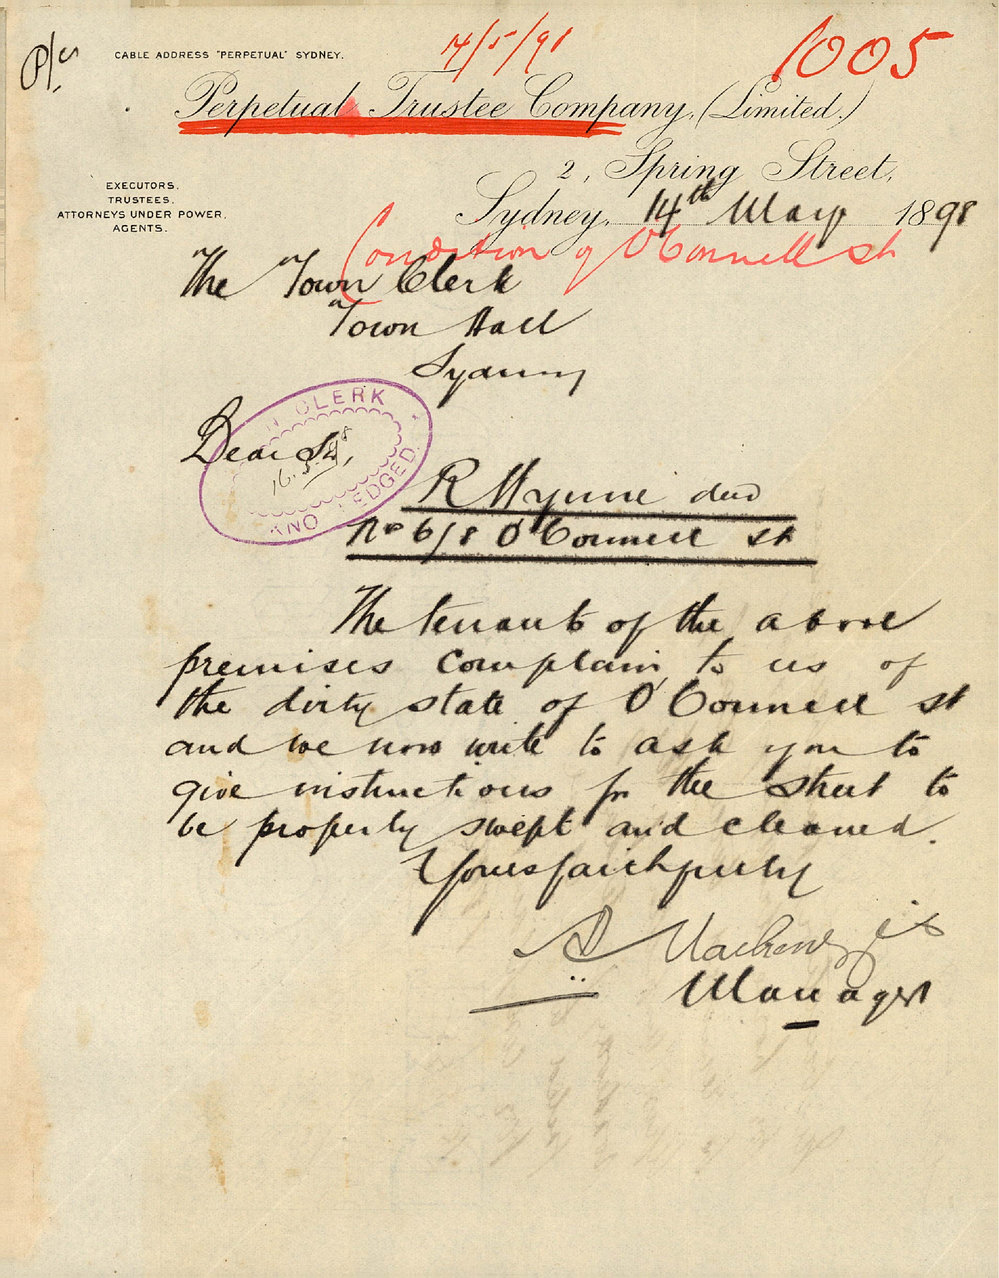 P/c
CABLE ADDRESS "PERPETUAL" SYDNEY.
14/5/98
1005
Perpetual Trustee Company, (Limited.)
2, Spring Street,
EXECUTORS.
TRUSTEES.
ATTORNEYS UNDER POWER.
AGENTS.
Sydney, 14th May 1898
Condition of O'Connell St
The Town Clerk
Town Hall
Sydney
CLERK
16.5.98
Dear Sir,
R Wynne decd
No 6/8 O'Connell St
The tenants of the above
premises complain to us of
the dirty state of O'Connell St
and we now write to ask you to
give instructions for the street to
be properly swept and cleaned.
Yours faithfully
Mackenzie
Manager